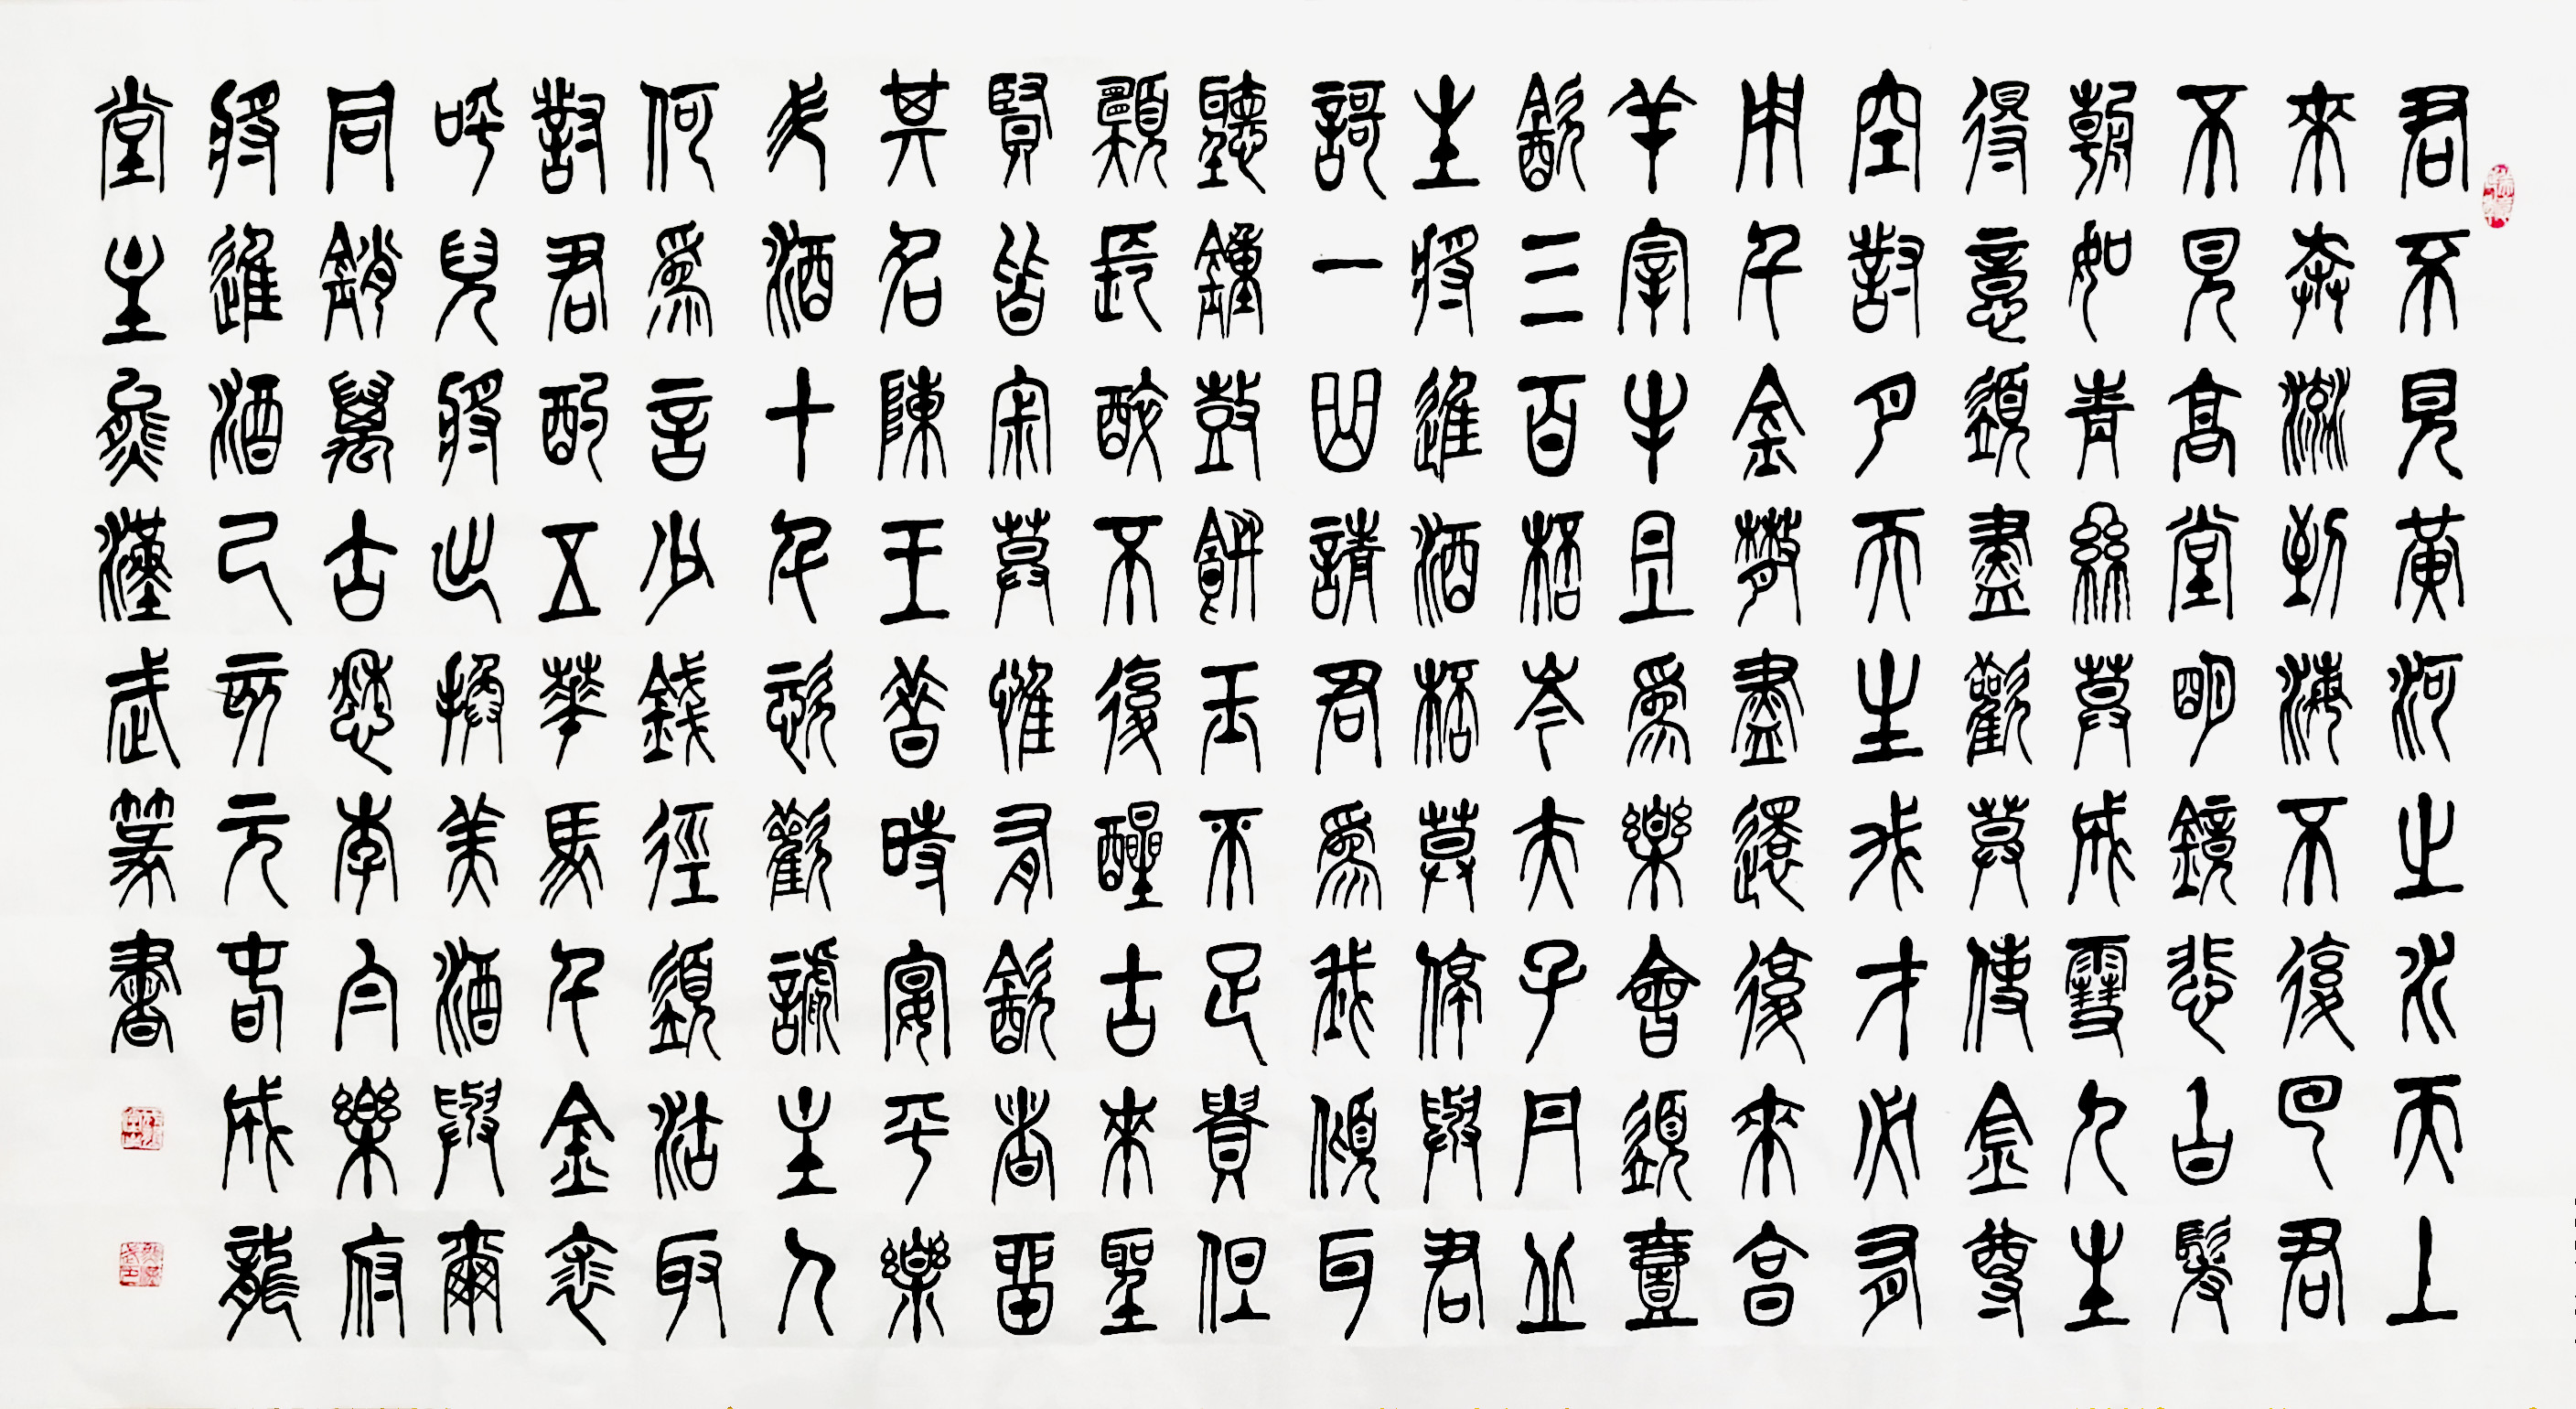 君不見黃河之水天上
來奔流到海不復回君
不見高堂明鏡悲白髮
朝如青絲莫成雪人生
得意須盡歡莫使金尊
空對月天生我才必有
用千金散盡還復來亯
羊宰牛且爲樂會須壹
飲三百杯岑夫子丹丘
生將進酒杯莫停與君
謌一曲請君爲我傾耳
聽鐘鼓饌玉不足貴但
願長醉不復醒古來聖
賢皆寂莫惟有飲者留
其名陳王昔時宴平樂
斗酒十千恣歡謔主人
何爲言少錢徑須沽取
對君酌五華馬千金裘
呼兒將出換美酒與爾
同銷萬古愁李白樂府
將進酒己亥元吉成龍
堂主漢武篆書